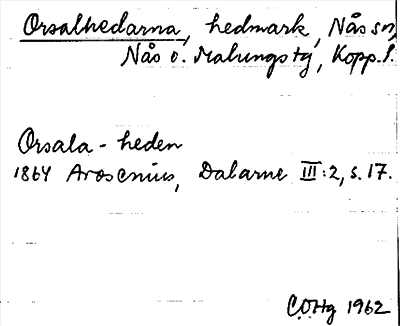 Orsalhedarna, hedmark, Nås sn,
Nås o. Malungs tg, Kopp. l.
Orsala-heden
1864 Arosenius, Dalarne III:2, s. 17.
C.O.Hg 1962